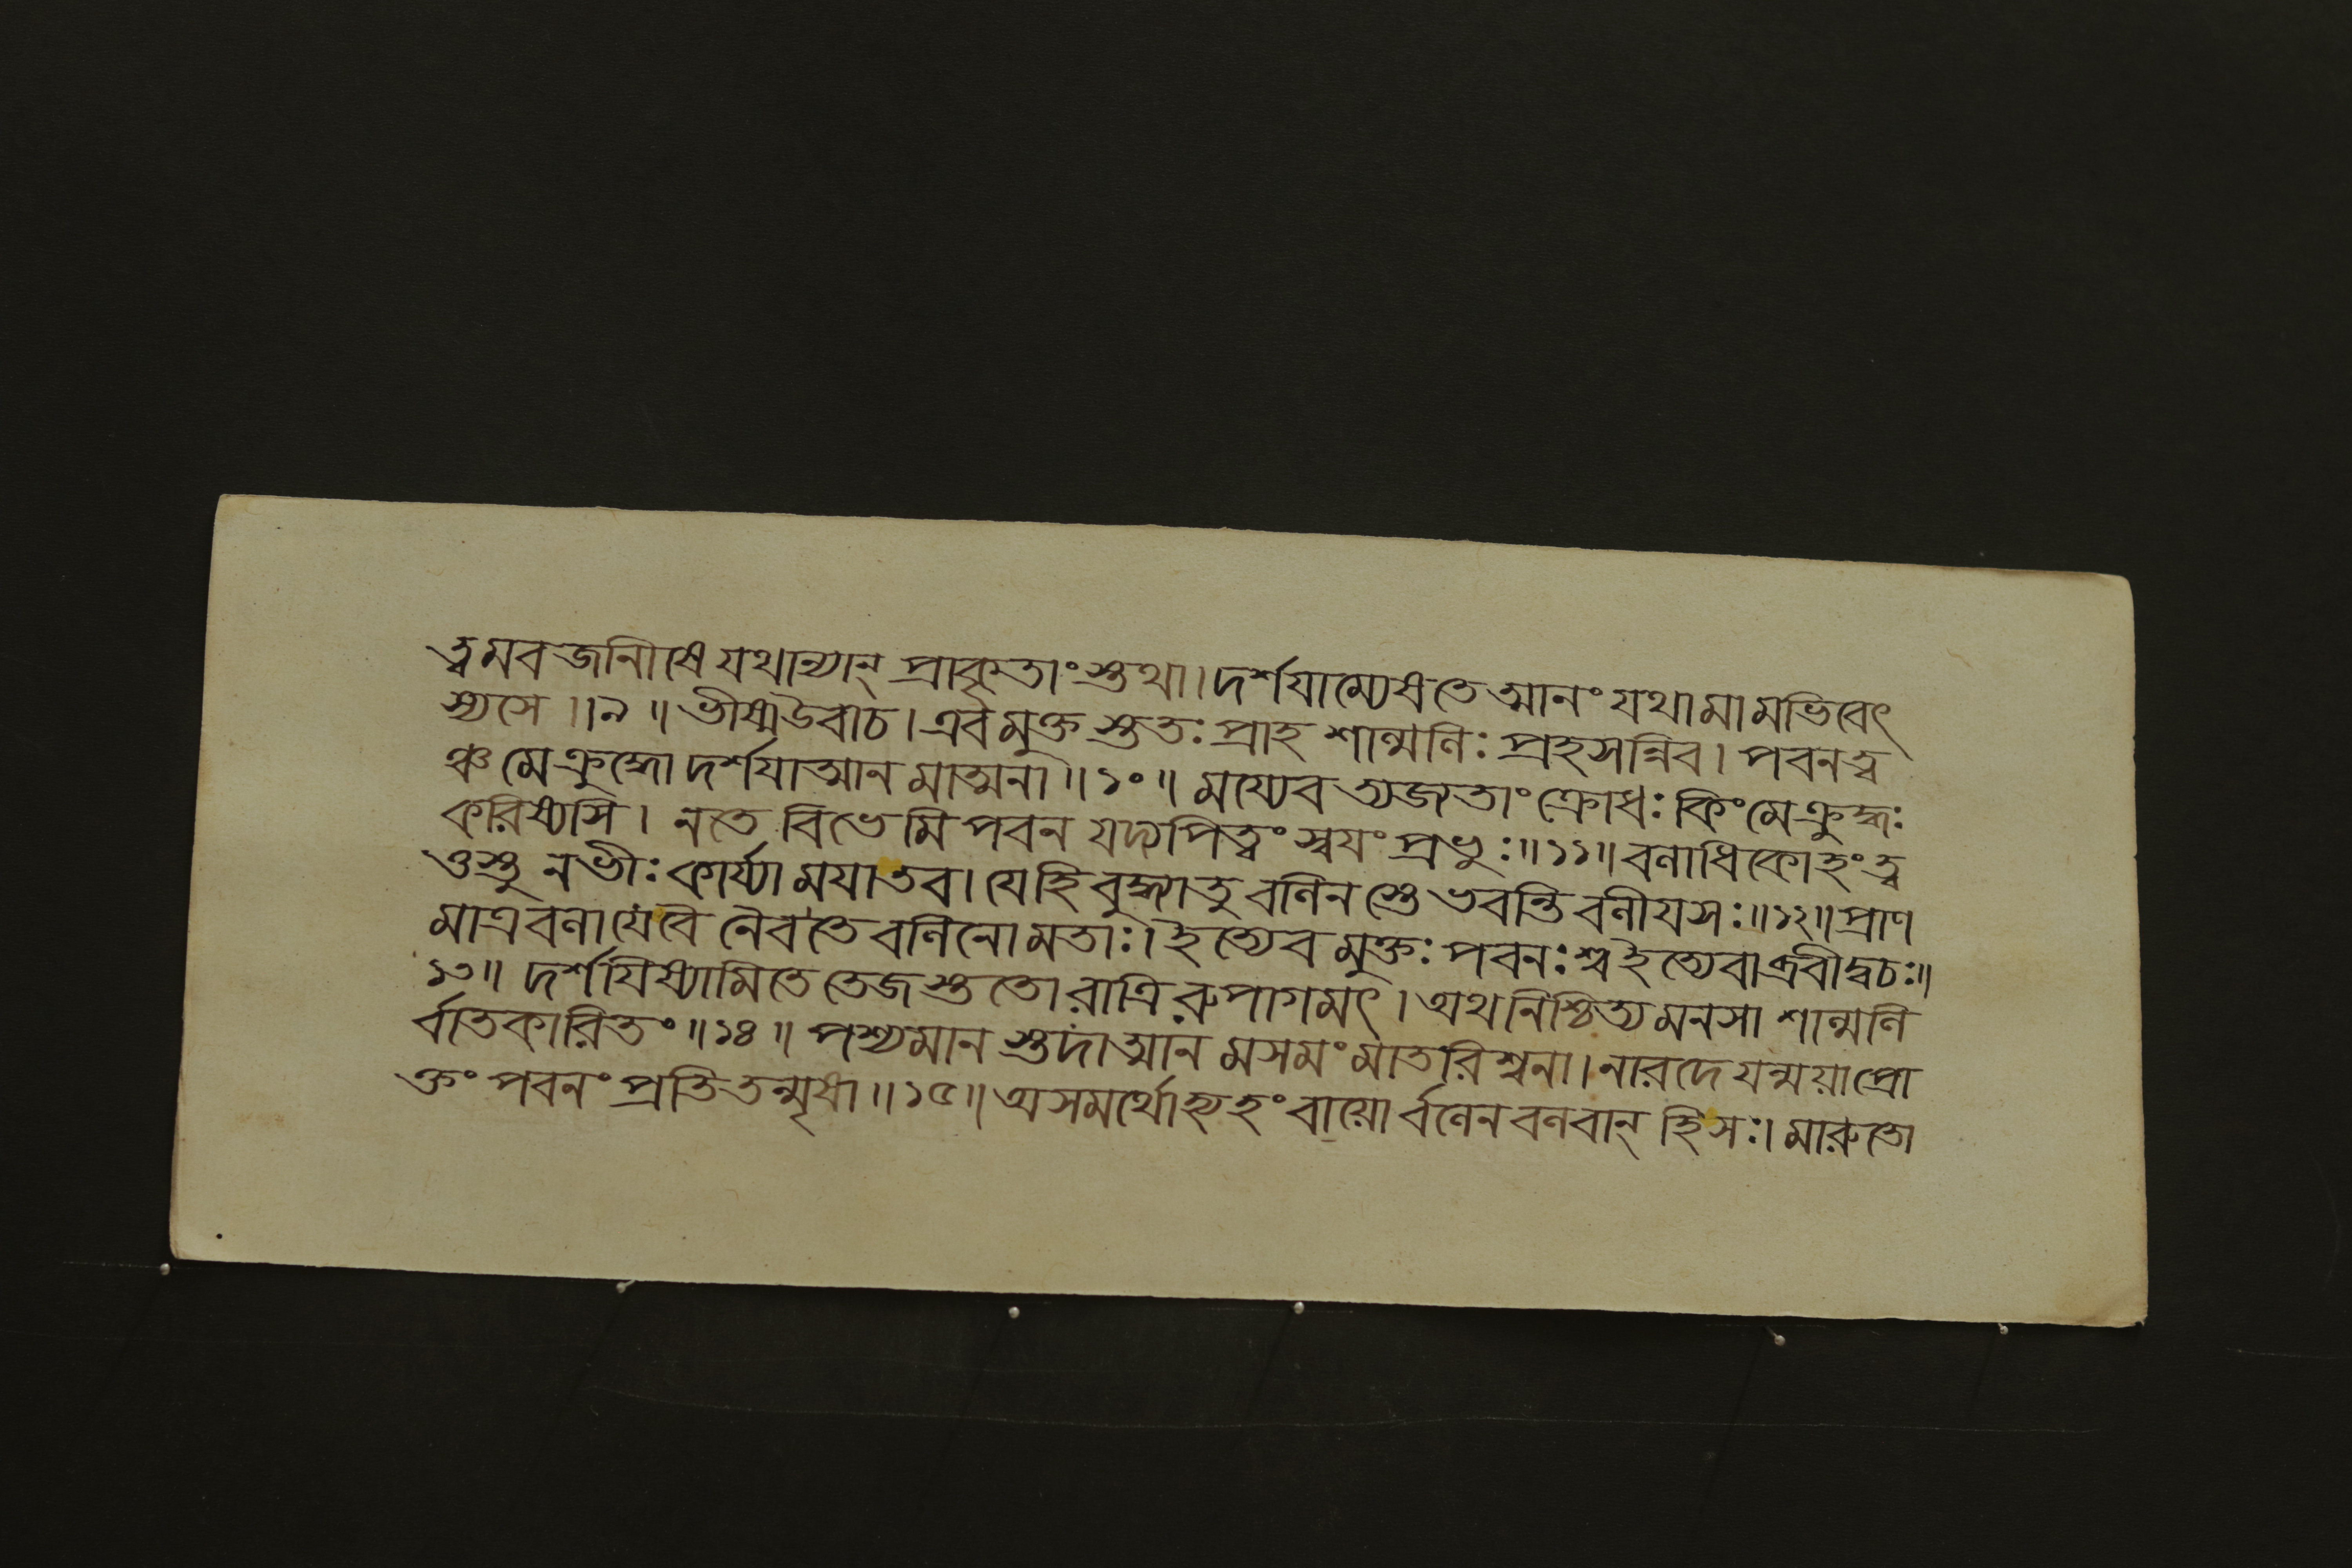 ত্ত্বমব জানীষে যথান্যান্ প্রাকৃতাংস্তথা। দর্শযাম্যেষতে আনং যথা মামভিবেৎ
স্যসে ॥ ৯ ॥ ভীষ্মউবাচ। এবমুক্তস্ততঃ প্রাহ শাল্মলিঃ প্রহসন্নিব। পবনত্ব
ঞ্চ মে ক্রুদ্ধো দর্শযাত্মানমাত্মনা ॥ ১০ ॥ ময্যেব ত্যজ্যতাং ক্রোধঃ কিং মে ক্রুদ্ধঃ
করিষ্যসি। ন তে বিভেমি পবন যদ্যপিত্বং স্বযং প্রভুঃ ॥ ১১ ॥ বলাধিকোহং ত্ব
ত্তস্তু ন ভীঃ কার্য্যা মযা তব। যে হি বুদ্ধ্যাতু বলিনস্তে ভবন্তি বলীযসঃ ॥ ১২ ॥ প্রাণ
মাত্রবলা যে বৈ নৈব তে বলিনো মতাঃ। ইত্যেবমুক্তঃ পবনঃ শ্ব ইত্যেবাব্রবীদ্বচঃ ॥
১৩ ॥ দর্শযিষ্যামি তে তেজস্ততো রাত্রিরুপাগমৎ। অথ নিশ্চিত্য মনসা শাল্মলি
র্বাতকারিতং ॥ ১৪ ॥ পশ্যমানস্তদাত্মানমসমং মাতরিশ্বনা। নারদে যন্ময়া প্রো
ক্তং পবনং প্রতি তন্মৃষা ॥ ১৫ ॥ অসমর্থোহ্যহং বায়োর্বলেন বলবান্ হি সঃ। মারুতো